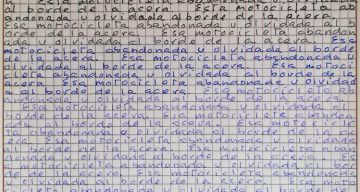 Esa motocicleta abandonada u olvidada al
borde de la acera. Esta motocicleta ab
andonada olvidada al borde de la acera.
Esa motocicleta abandonada u olvidada al b
orde de la acera. Esa motocicleta abandon
ada u olvidada al borde de la acera. Esa
motocicleta abandonada u olvidada al borde
de la acera. Esa motocicleta abandonada u
olvidada al borde de la acera. Esa motoci
cleta abandonada u olvidada al borde de la
acera. Esa motocicleta abandonade u olvidad
a al borde de la acera. Esa motocicleta ab
andonada u olvidada al borde de la acera.
Esa motocicleta abandonada u olvidada al
borde de la acera. Esa motocicleta abandon
ada u olvidada al borde de la acera. Esa
motocicleta abandonada u olvidada al bord
e de la acera. Esa motocicle
ta abandonada u olvidada al borde de la ac
era. Esa motocicleta abandonada u olvidada
al borde de la acera. Esa motocicleta aban
donada u olvidada al borde de la acera. Es
a motocicleta abandonada u olvidada al bor
de de la acera. Esa motocicleta abandonada
u olvidada al borde de la acera. Esa moto